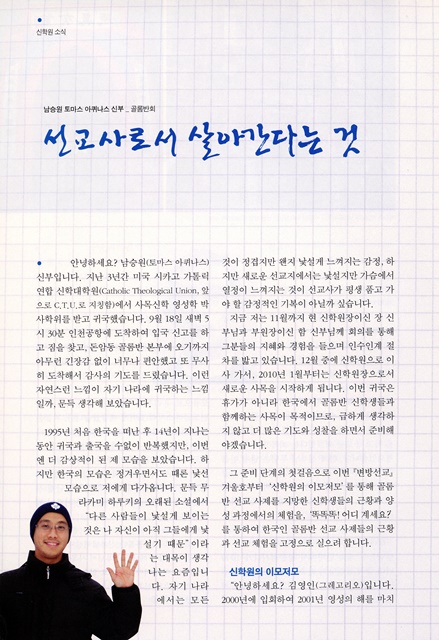 신학원 소식
남승원 토마스 아퀴나스 신부 _ 골롬반회
선교사로서 살아간다는 것
안녕하세요? 남승원(토마스 아퀴나스)
신부입니다. 지난 3년간 미국 시카고 가톨릭
연합 신학대학원(Catholic Theological Union, 앞
으로 C.T.U.로 지칭함)에서 사목신학 영성학 박
사학위를 받고 귀국했습니다. 9월 18일 새벽 5
시 30분 인천공항에 도착하여 입국 신고를 하
고 짐을 찾고, 돈암동 골롬반 본부에 오기까지
아무런 긴장감 없이 너무나 편안했고 또 무사
히 도착해서 감사의 기도를 드렸습니다. 이런
자연스런 느낌이 자기 나라에 귀국하는 느낌
일까, 문득 생각해 보았습니다.
1995년 처음 한국을 떠난 후 14년이 지나는
동안 귀국과 출국을 수없이 반복했지만, 이번
엔 더 감상적이 된 제 모습을 보았습니다. 하
지만 한국의 모습은 정겨우면서도 때론 낯선
모습으로 저에게 다가옵니다. 문득 무
라카미 하루키의 오래된 소설에서
“다른 사람들이 낯설게 보이는
것은 나 자신이 아직 그들에게 낯
설기 때문” 이라
는 대목이 생각
나는 요즘입니
다. 자기 나라
에서는 모든
것이 정겹지만 왠지 낯설게 느껴지는 감정, 하
지만 새로운 선교지에서는 낯설지만 가슴에서
열정이 느껴지는 것이 선교사가 평생 품고 가
야 할 감정적인 기복이 아닐까 싶습니다.
지금 저는 11월까지 현 신학원장이신 장 신
부님과 부원장이신 함 신부님께 회의를 통해
그분들의 지혜와 경험을 들으며 인수인계 절
차를 밟고 있습니다. 12월 중에 신학원으로 이
사 가서, 2010년 1월부터는 신학원장으로서
새로운 사목을 시작하게 됩니다. 이번 귀국은
휴가가 아니라 한국에서 골롬반 신학생들과
함께하는 사목이 목적이므로, 급하게 생각하
지 않고 더 많은 기도와 성찰을 하면서 준비해
야겠습니다.
그 준비 단계의 첫걸음으로 이번 『변방선교』
겨울호부터 ‘신학원의 이모저모’를 통해 골롬
반 선교 사제를 지망한 신학생들의 근황과 양
성 과정에서의 체험을, ‘똑똑똑! 어디 계세요?’
를 통하여 한국인 골롬반 선교 사제들의 근황
과 선교 체험을 고정으로 실으려 합니다.
신학원의 이모저모
“안녕하세요? 김영인(그레고리오)입니다.
2000년에 입회하여 2001년 영성의 해를 마치